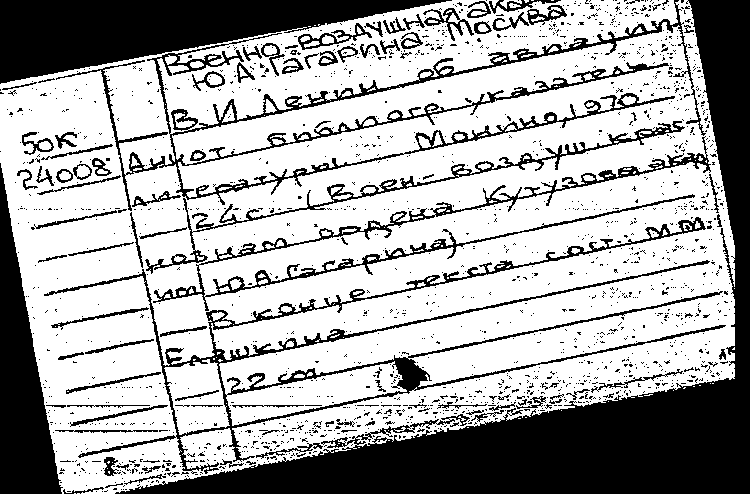 Военно-воздушная акад
Ю.А. Гагарина. Москва
В.И. Ленин об авиации
50к Аннот. библиогр. указатель
24008 литературы. Монино, 1970
24с. (Воен.-воздуш. крас-
нознам ордена Кутузова акад
им Ю.А. Гагарина)
В конце текста сост.: М.М.
Елашкина
22 см.
8